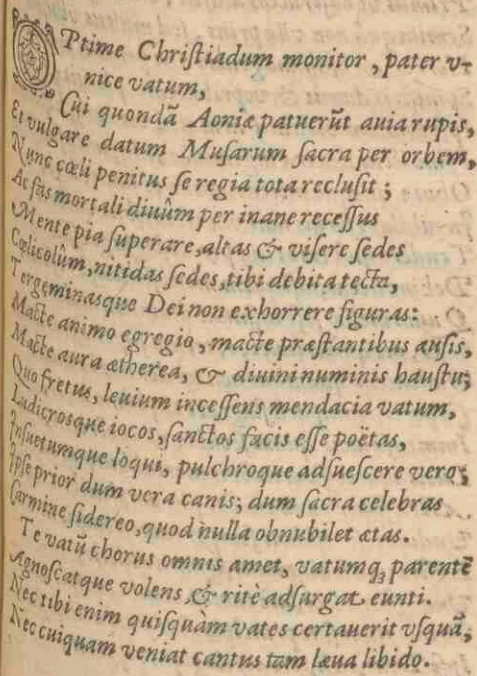 OPtime Chriſtiadum monitor, pater v-
nice vatum,
Cui quondã Aoniæ patuerũt auia rupis,
Et vulgare datum Muſarum ſacra per orbem,
Nunc cœli penitus ſe regia tota recluſit;
Ac fas mortali diuûm per inane receſſus
Mente pia ſuperare, altas & viſere ſedes
Cœlicolûm, nitidas ſedes, tibi debita tecta,
Tergeminasque Dei non exhorrere figuras:
Macte animo egregio, macte præſtantibus auſis,
Macte aura ætherea, & diuini numinis hauſtu;
Quo fretus, leuium inceſſens mendacia vatum,
Ludicrosque iocos, ſanctos facis eſſe poëtas,
Inſuetumque loqui, pulchroque adſueſcere vero;
Ipſe prior dum vera canis; dum ſacra celebras
Carmine ſidereo, quod nulla obnubilet ætas.
Te vatũ chorus omnis amet, vatumq; parentẽ
Agnoſcatque volens, & ritè adſurgat eunti.
Nec tibi enim quiſquàm vates certauerit vſquã,
Nec cuiquam veniat cantus tam læua libido.